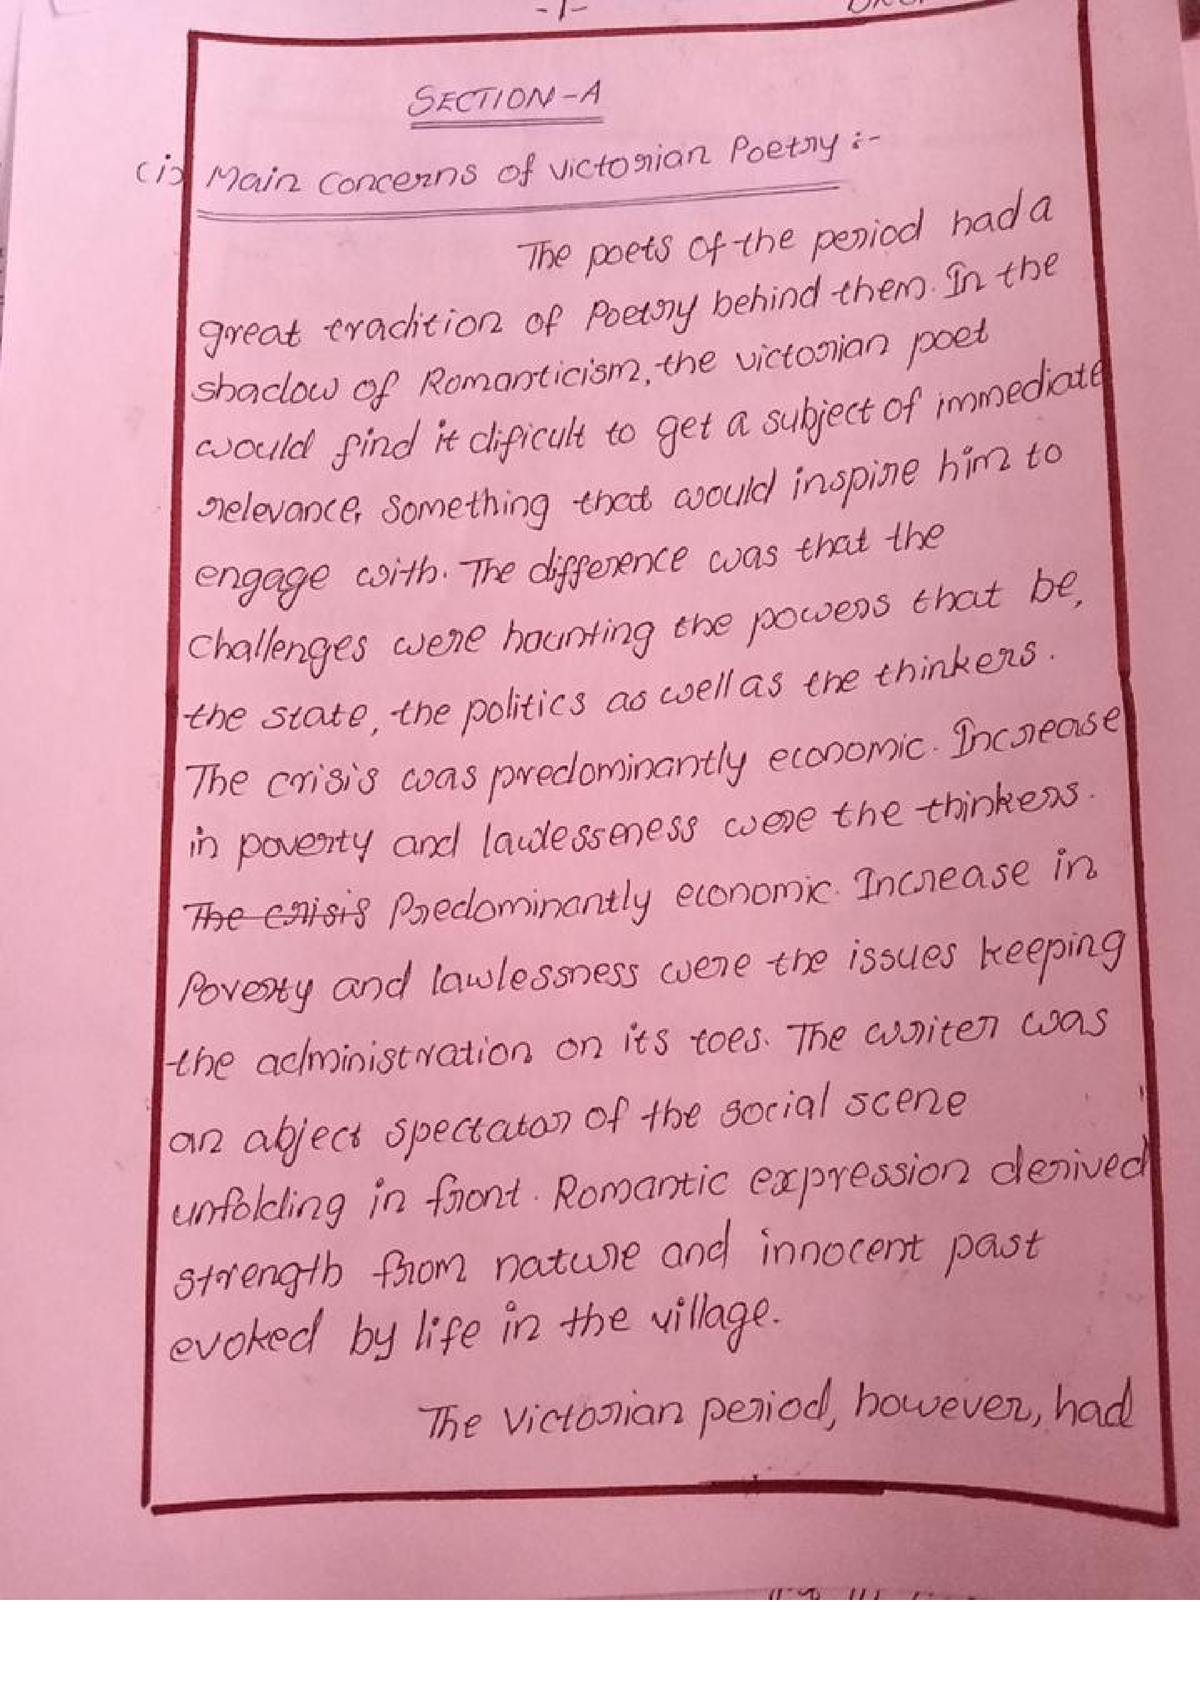 -1-
SECTION-A
(i) Main Concerns of Victorian Poetry :-
The poets of the period had a
great tradition of Poetry behind them. In the
shadow of Romanticism, the victorian poet
would find it dificult to get a subject of immediate
relevance, something that would inspire him to
engage with. The difference was that the
challenges were haunting the powers that be,
the state, the politics as well as the thinkers.
The crisis was predominantly economic. Increase
in poverty and lawlesseness were the thinkers.
The crisis Predominantly economic. Increase in
Poverty and lawlessness were the issues keeping
the administration on its toes. The writer was
an abject spectator of the social scene
unfolding in front. Romantic expression derived
strength from nature and innocent past
evoked by life in the village.
The Victorian period, however, had